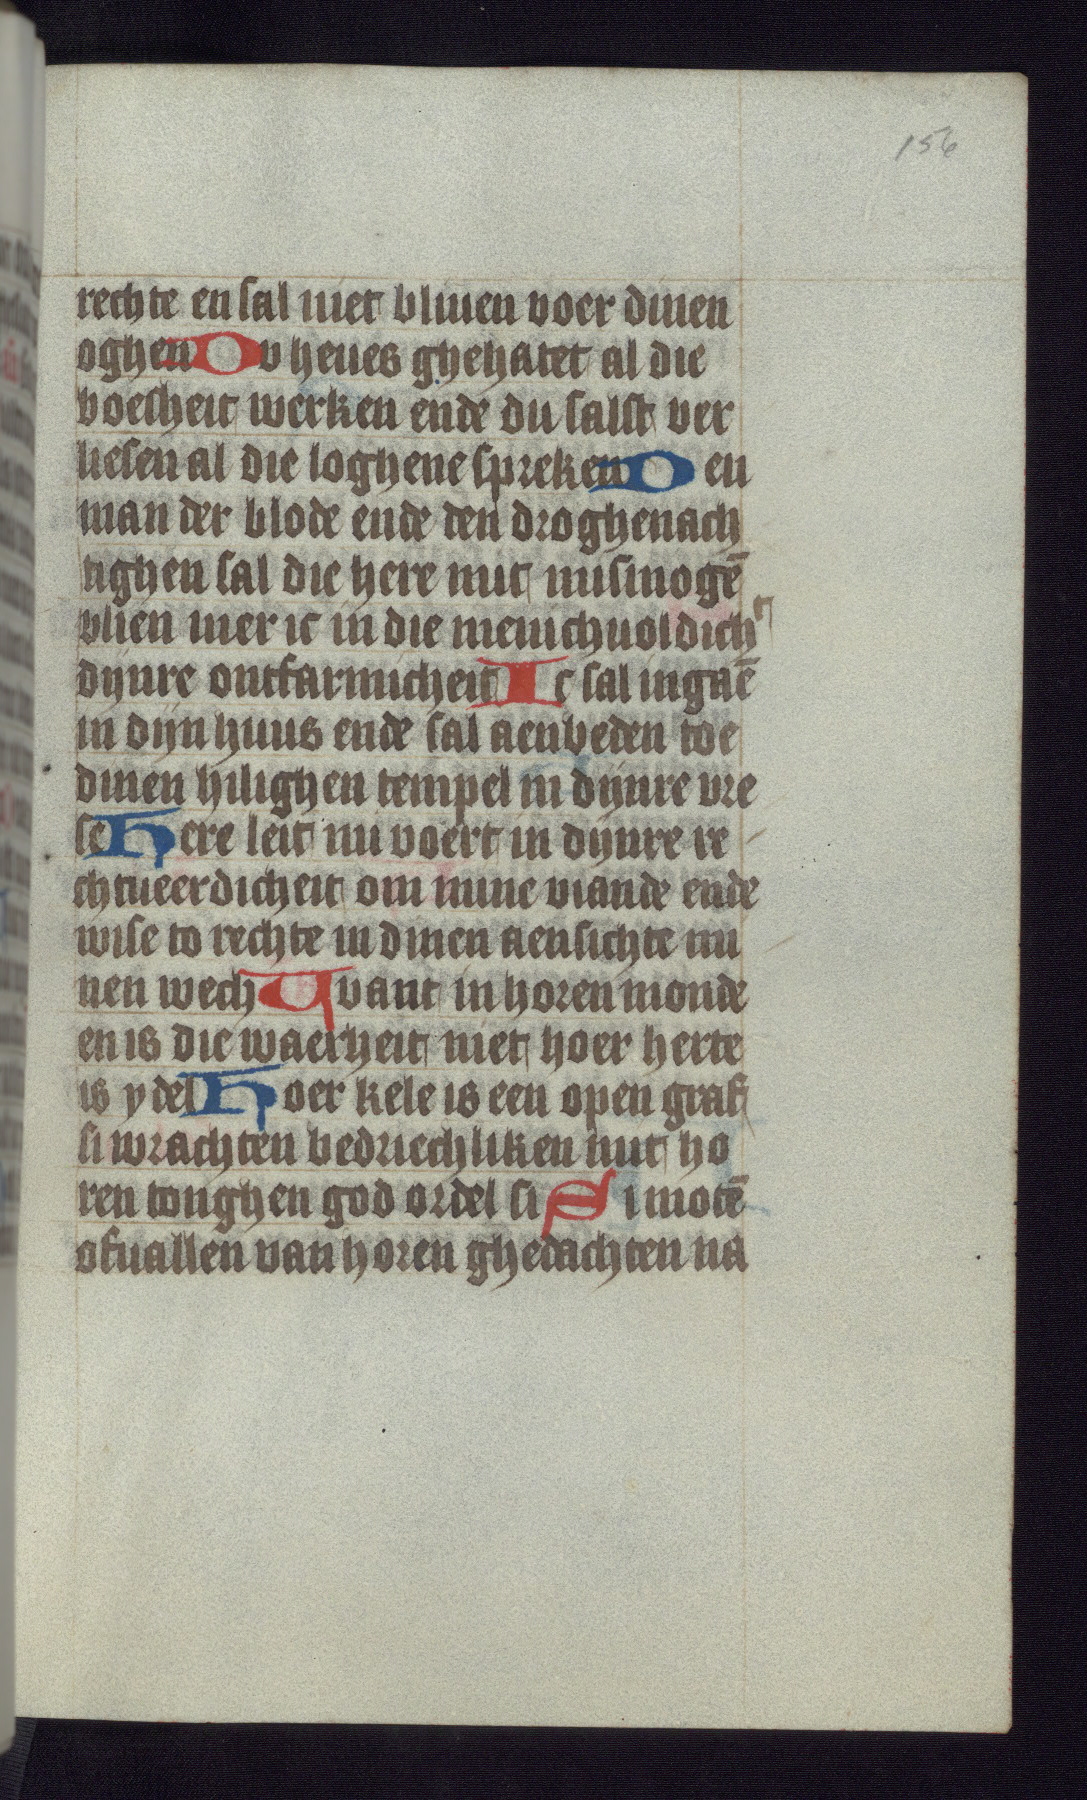 156
rechte en sal niet bliuen voer dinen
oghen Du heues ghehatet al die
boesheit werken ende du salst ver
liesen al die loghene spreken Den
man der blode ende den droghenach
tighen sal die here mit mismogē
vlien mer ic in die menichuoldichᵗ
dijnre ontfarmicheit Ic sal ingaē
in dijn huus ende sal aenbeden toe
dinen hilighen tempel in dijnre vre
se Here leit mi voert in dijnre re
chtueerdicheit om mine viande ende
wise to rechte in dinen aensichte mi
nen wech Want in horen monde
en is die waerheit niet hoer herte
is ydel Hoer kele is een open graf
si wrachten bedriechliken mit ho
ren tonghen god ordel si Si motē
ofuallen van horen ghedachten na